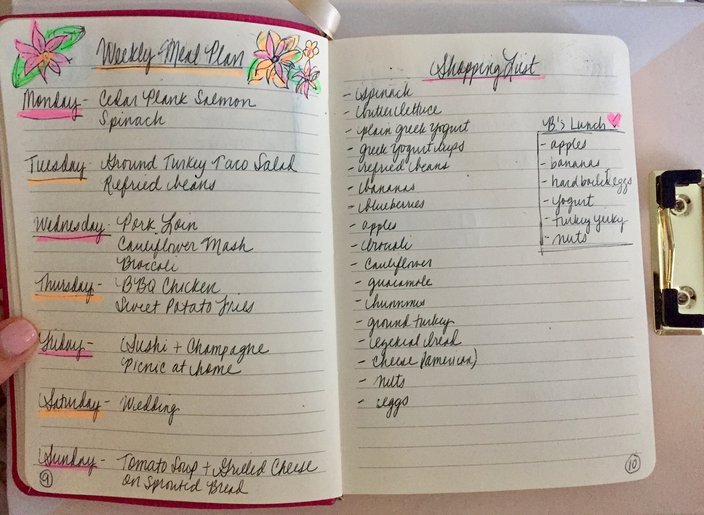 Weekly Meal Plan
Monday - Cedar Plank Salmon
Spinach
Tuesday - Ground Turkey Taco Salad
Refried beans
Wednesday - Pork Loin
Cauliflower Mash
Broccoli
Thursday - BBQ Chicken
Sweet Potato Fries
Friday - Sushi + Champagne
Picnic at home
Saturday - Wedding
Sunday - Tomato Soup + Grilled Cheese
on Sprouted Bread
9
Shopping List
- spinach
- butter lettuce
- plain greek yogurt
- greek yogurt cups
- refried beans
- bananas
- blueberries
- apples
- brocoli
- cauliflower
- guacamole
- hummus
- ground turkey
- ezekial bread
- cheese (american)
- nuts
- eggs
B's Lunch
- apples
- bananas
- hard boiled eggs
- yogurt
- turkey jerky
- nuts
10